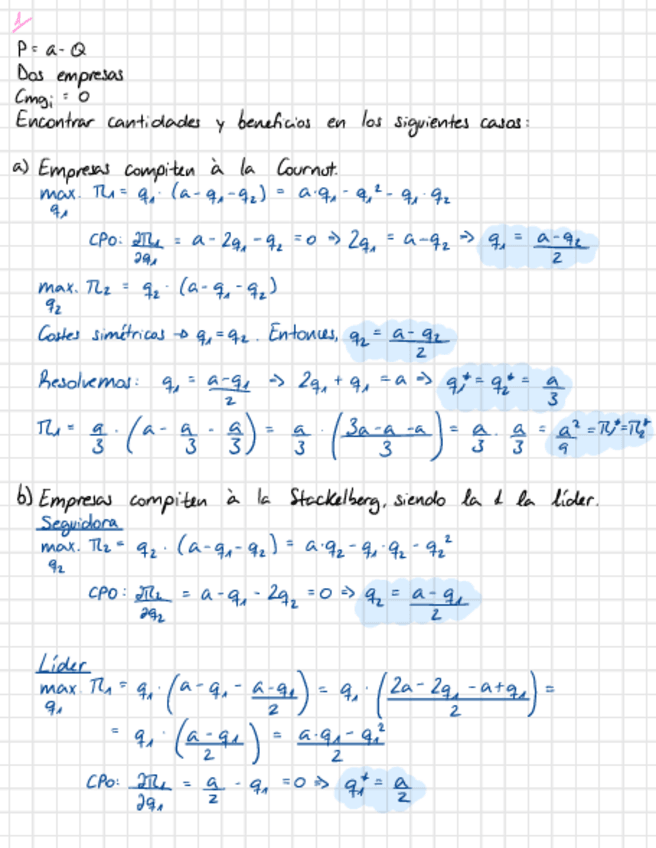 1
P = a - Q
Dos empresas
Cmgi = 0
Encontrar cantidades y beneficios en los siguientes casos:
a) Empresas compiten à la Cournut.
max. π1 = q1 · (a - q1 - q2) = a·q1 - q1² - q1·q2
q1
CPO: ∂π1/∂q1 = a - 2q1 - q2 = 0 ⇒ 2q1 = a - q2 ⇒ q1 = (a - q2)/2
max. π2 = q2 · (a - q1 - q2)
q2
Costes simétricos → q1 = q2. Entonces, q2 = (a - q2)/2
Resolvemos: q1 = (a - q1)/2 ⇒ 2q1 + q1 = a ⇒ q1* = q2* = a/3
π1 = a/3 · (a - a/3 - a/3) = a/3 · ((3a - a - a)/3) = a/3 · a/3 = a²/9 = π1* = π2*
b) Empresas compiten à la Stackelberg, siendo la 1 la líder.
Seguidora
max. π2 = q2 · (a - q1 - q2) = a·q2 - q1·q2 - q2²
q2
CPO: ∂π2/∂q2 = a - q1 - 2q2 = 0 ⇒ q2 = (a - q1)/2
Líder
max. π1 = q1 · (a - q1 - (a - q1)/2) = q1 · ((2a - 2q1 - a + q1)/2) =
q1
= q1 · ((a - q1)/2) = (a·q1 - q1²)/2
CPO: ∂π1/∂q1 = a/2 - q1 = 0 ⇒ q1* = a/2